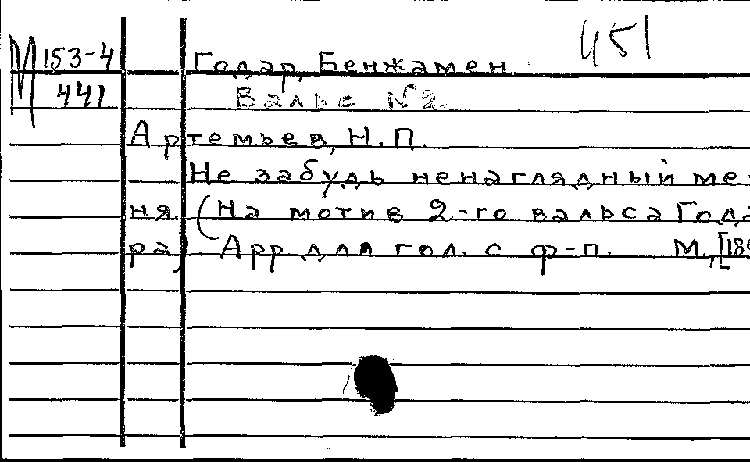 М 153-4
441
451
Годар, Бенжамен
Вальс №2.
Артемьев, Н.П.
Не забудь ненаглядный ме-
ня. (На мотив 2-го вальса Года-
ра). Арр. для гол. с ф-п. М., [189